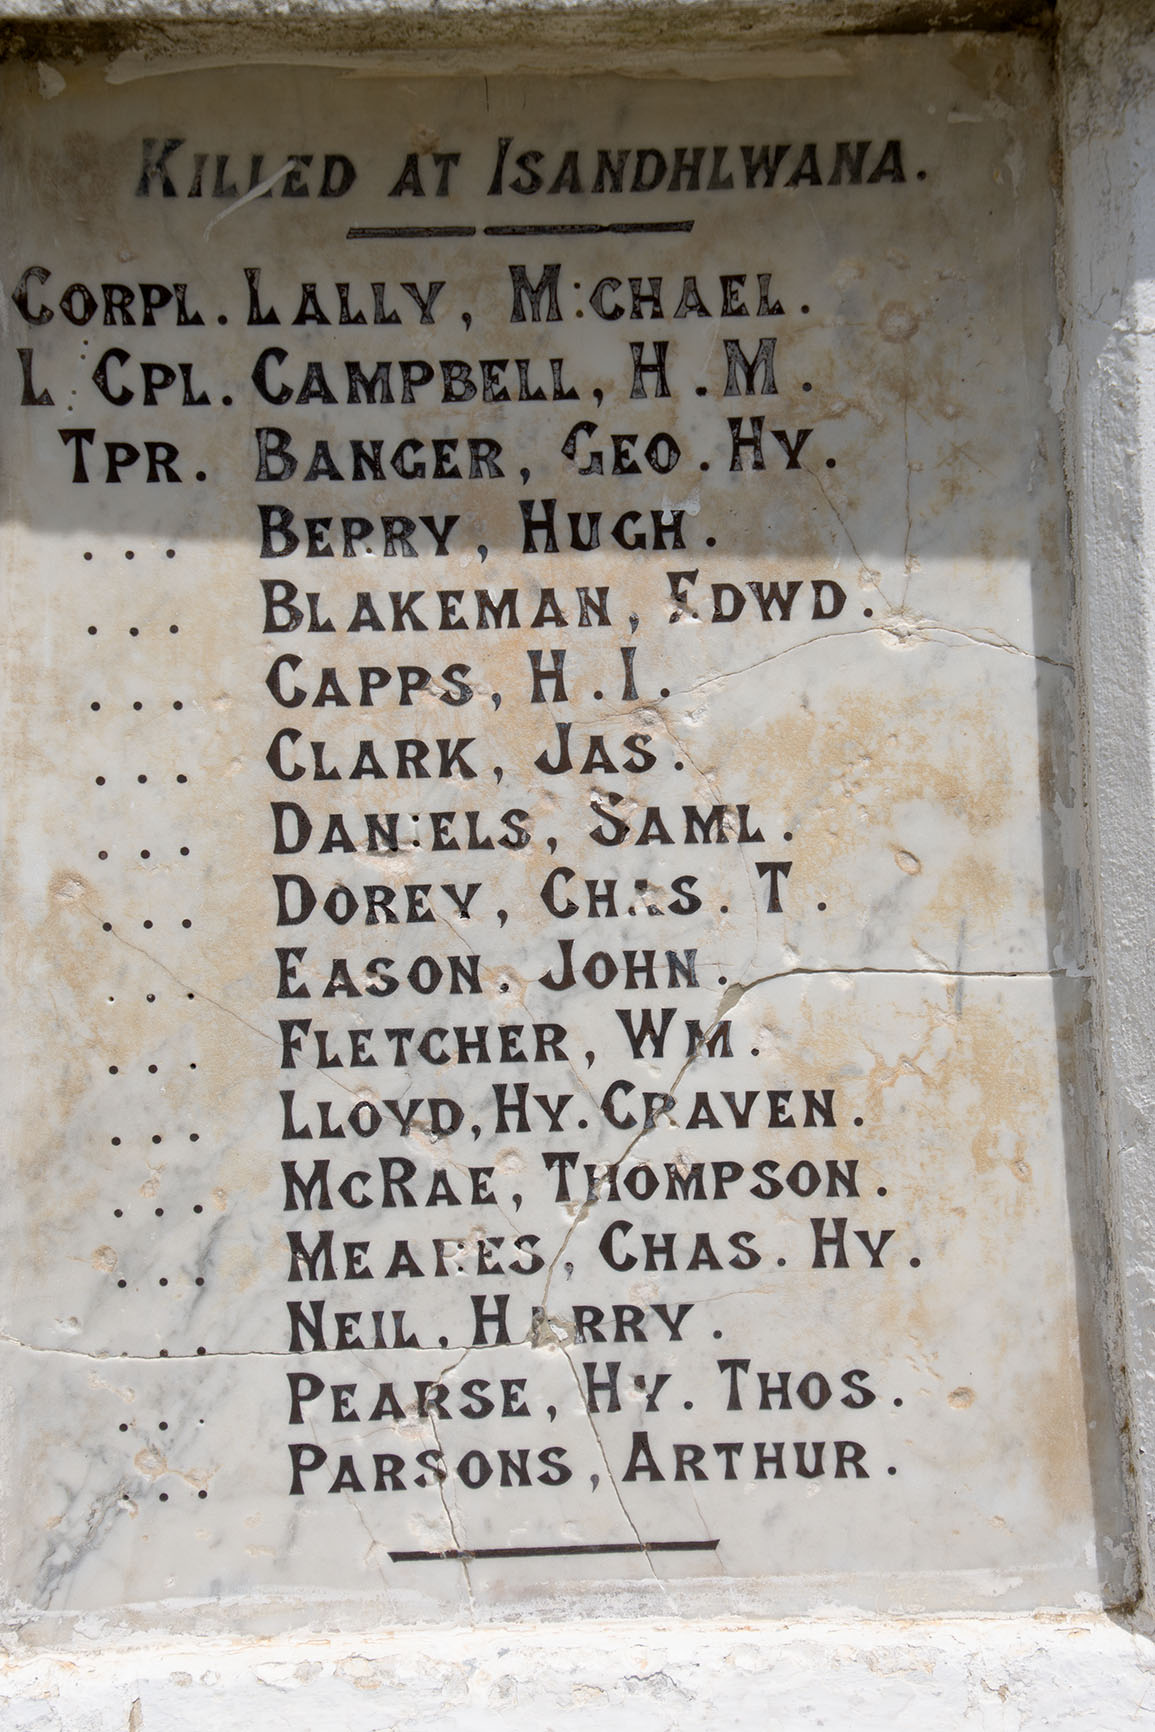 KILLED AT ISANDHLWANA.
CORPL. LALLY, MICHAEL.
L. CPL. CAMPBELL, H. M.
TPR. BANGER, GEO. HY.
... BERRY, HUGH.
... BLAKEMAN, EDWD.
... CAPPS, H. I.
... CLARK, JAS.
... DANIELS, SAML.
... DOREY, CHAS. T.
... EASON, JOHN.
... FLETCHER, WM.
... LLOYD, HY. CRAVEN.
... MCRAE, THOMPSON.
... MEARES, CHAS. HY.
... NEIL, HARRY.
... PEARSE, HY. THOS.
... PARSONS, ARTHUR.